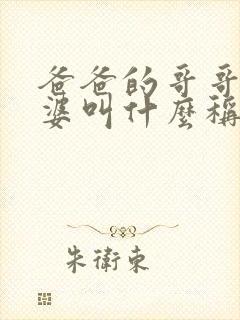 爸爸的哥哥
婆叫什麼稱
朱衛東